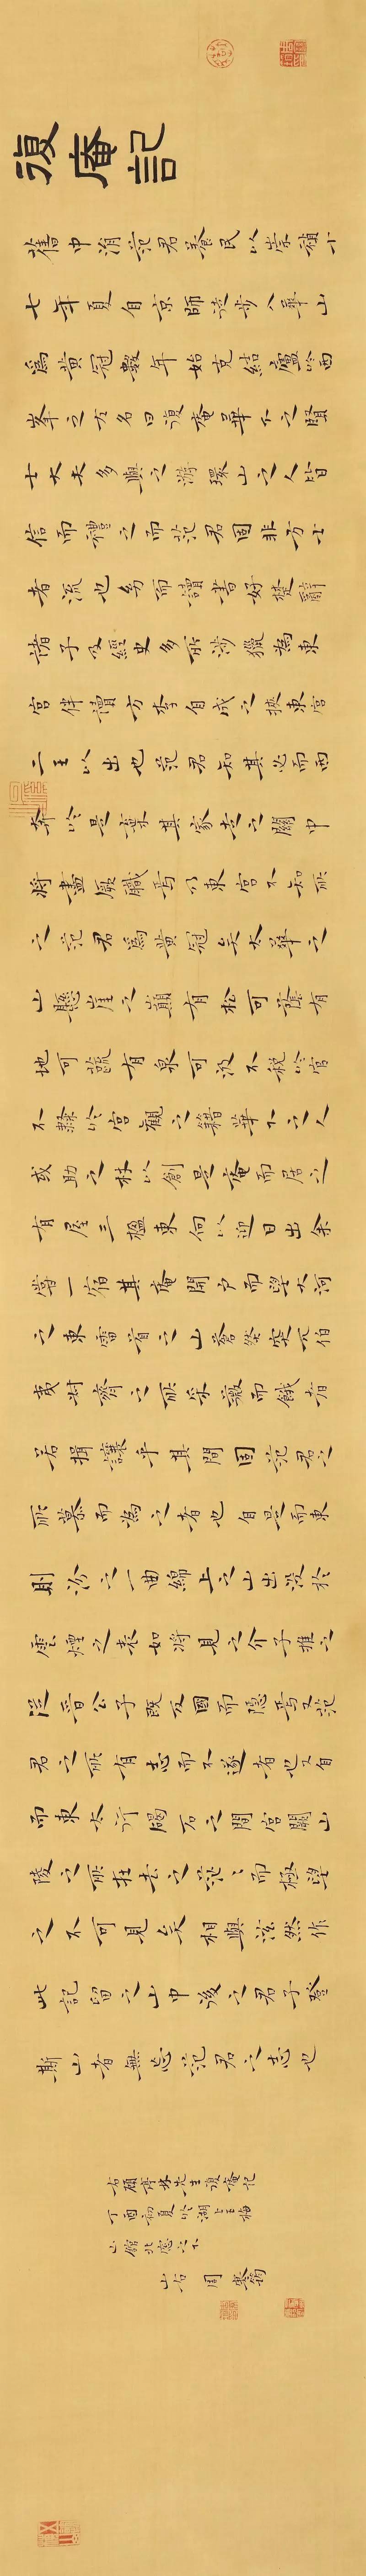 復庵記
舊中涓范君養民以崇禎十
七年夏自京師徒步入華山
爲黃冠數年始克結廬於西
峯之左名曰復庵華下之賢
士大夫多與之游環山之人皆
信而禮之而范君固非方士
者流也幼而讀書好楚辭
諸子及經史多所涉獵為東
宮伴讀方李自成之挾東宮
二王以出也范君知其必而西
奔於是棄其家走之關中
將盡厥職焉乃東宮不知所
之范君爲黃冠矣太華之
山懸崖之巔有松可蔭有
地可蔬有泉可汲不稅於官
不隸於宮觀之籍華下之人
或助之材以創是庵而居之
有屋三楹東向以迎日出余
嘗一宿其庵開户而望大河
之東雷首之山蒼然突兀伯
夷叔齊之所采薇而餓者
若揖讓乎其間固范君之
所慕而為之者也自是而東
則汾之一曲綿上之山出没於
雲煙之表如將見之介子推之
從晉公子既反國而隱焉又范
君之所有志而不遂者也又自
而東太行碣石之間宮闕山
陵之所在去之茫々而極望
之不可見矣相與泫然作
此記留之山中後之君子登
斯山者無忘范君之志也
右顧亭林先生復庵記
丁酉初夏於湖上
山館北窓之下
山右 周